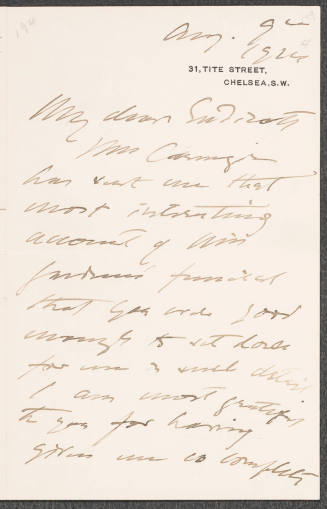 Aug. 9th
1924
31, TITE STREET,
CHELSEA, S.W.
My dear Endicott
Mrs Carnegie
has sent me that
most interesting
account of Mrs
Gardner's funeral
that you were good
enough to set down
for me in such detail
I am most grateful
to you for having
given me so complete